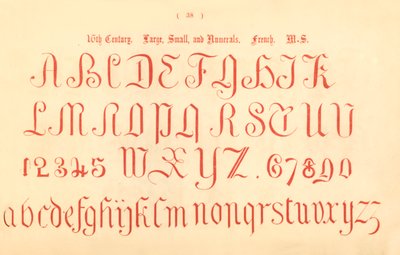 ( 38 )
16th Century. Large, Small, and Numerals. French. M.S.
A B C D E F G H I K
L M N O P Q R S T U V
1 2 3 4 5 W X Y Z . 6 7 8 9 0
a b c d e f g h i j k l m n o p q r s t u v x y z